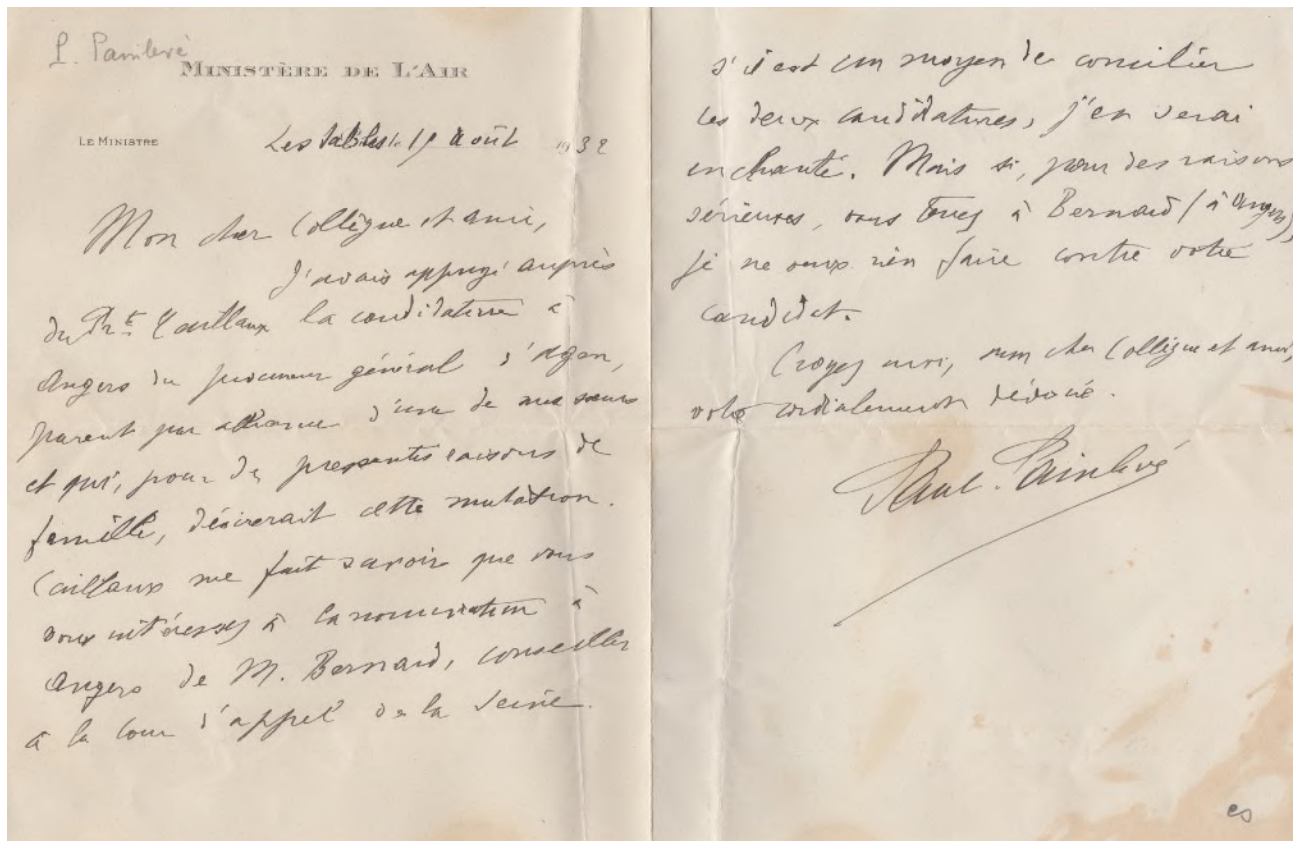 P. Painlevé
MINISTÈRE DE L'AIR
LE MINISTRE
Les Sables, 19 août 1932
Mon cher Collègue et ami,
J'avais appuyé auprès
du Pt Caillaux la candidature à
Angers du procureur général d'Agen,
parent par alliance d'une de mes sœurs
et qui, pour de pressantes raisons de
famille, désirerait cette mutation.
Caillaux me fait savoir que vous
vous intéressez à la nomination à
Angers de M. Bernard, conseiller
à la Cour d'appel de la Seine.
s'il est un moyen de concilier
les deux candidatures, j'en serai
enchanté. Mais si, pour des raisons
sérieuses, vous tenez à Bernard (à Angers),
je ne veux rien faire contre votre
candidat.
Croyez moi, mon cher Collègue et ami,
votre cordialement dévoué.
Paul Painlevé